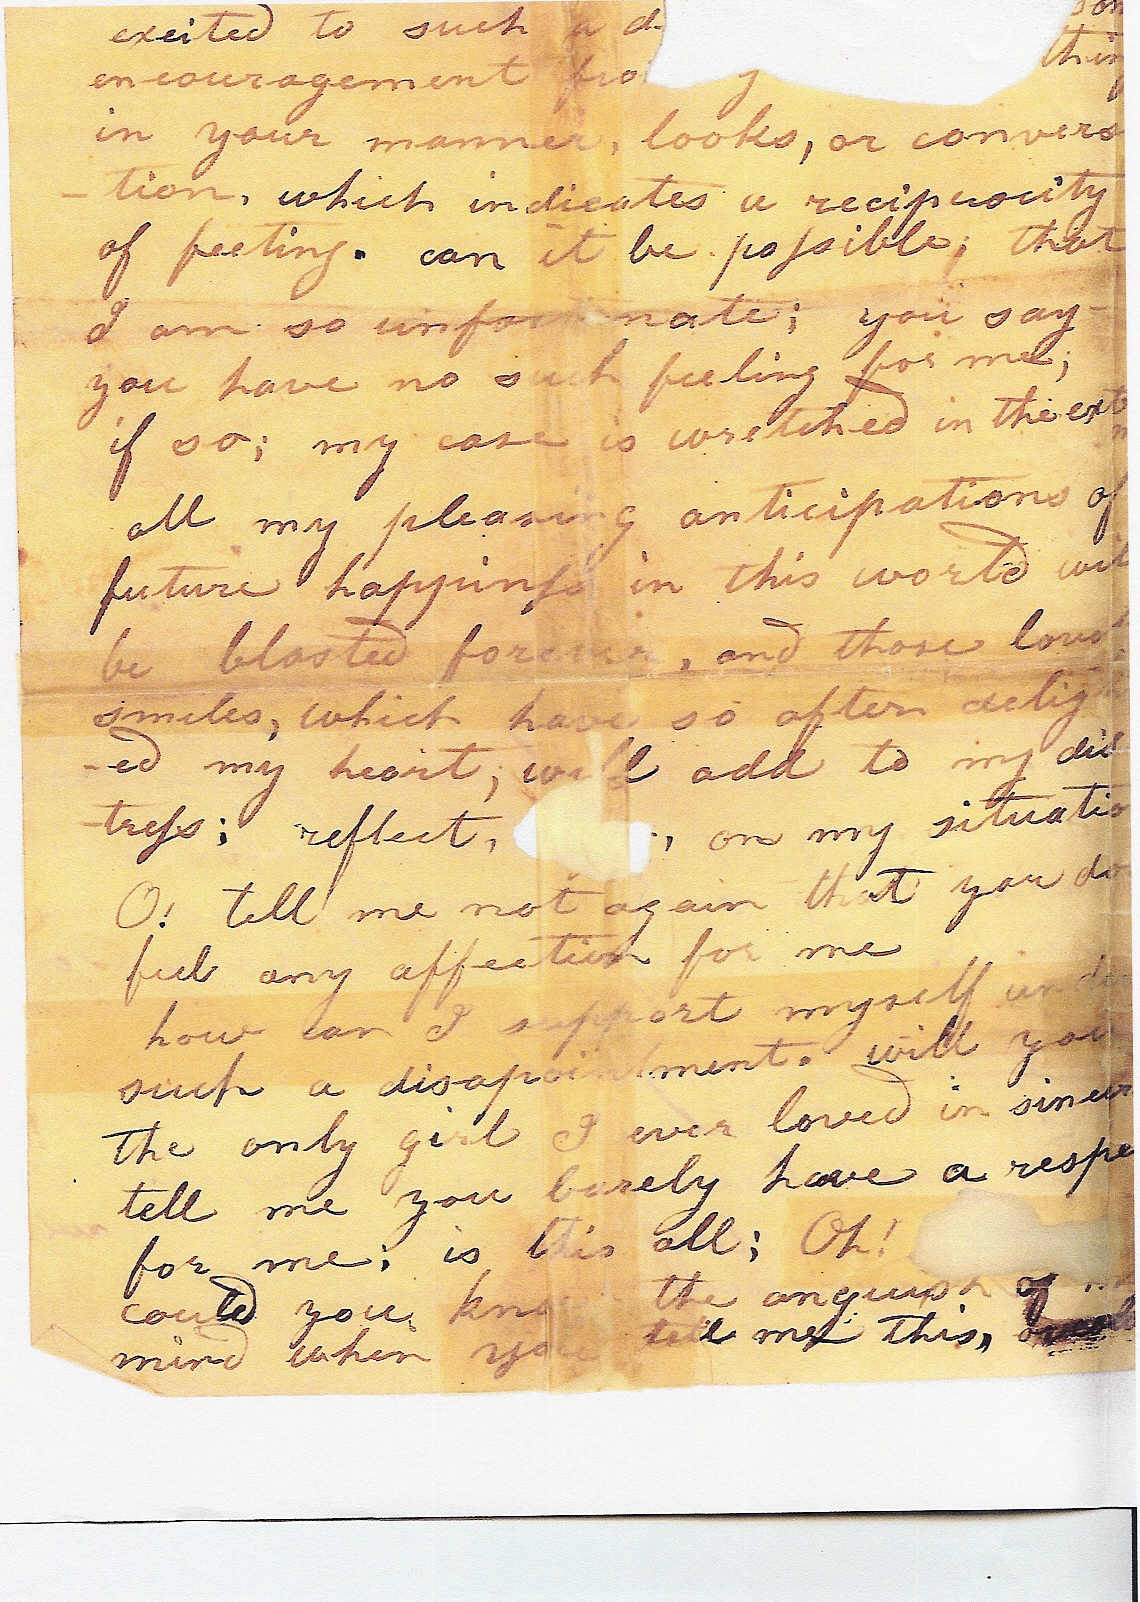 excited to such a
encouragement
in your manner, looks, or convers
-tion, which indicates a reciprocity
of feeling. can it be poſsible; that
I am so unfortunate; you say-
you have no such feeling for me;
if so; my case is wretched in the
all my pleasing anticipations of
future happineſs in this world
be blasted forever, and those
smiles, which have so often delig
-ed my heart; will add to my dis
-treſs; reflect, , on my situatio
O! tell me not again that you do
feel any affection for me
how can I support myself under
such a disapointment. will you
the only girl I ever loved in sincer
tell me you barely have a respe
for me; is this all; Oh!
could you know the anguish of my
mind when you tell me this,